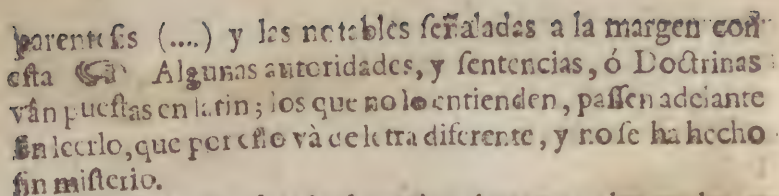 parentesis (....) y las notables señaladas a la margen con
esta ☞ Algunas autoridades, y sentencias, ó Doctrinas
ván puestas en latin; los que no lo entienden, passen adelante
sin leerlo, que por esso và de letra diferente, y no se ha hecho
sin misterio.